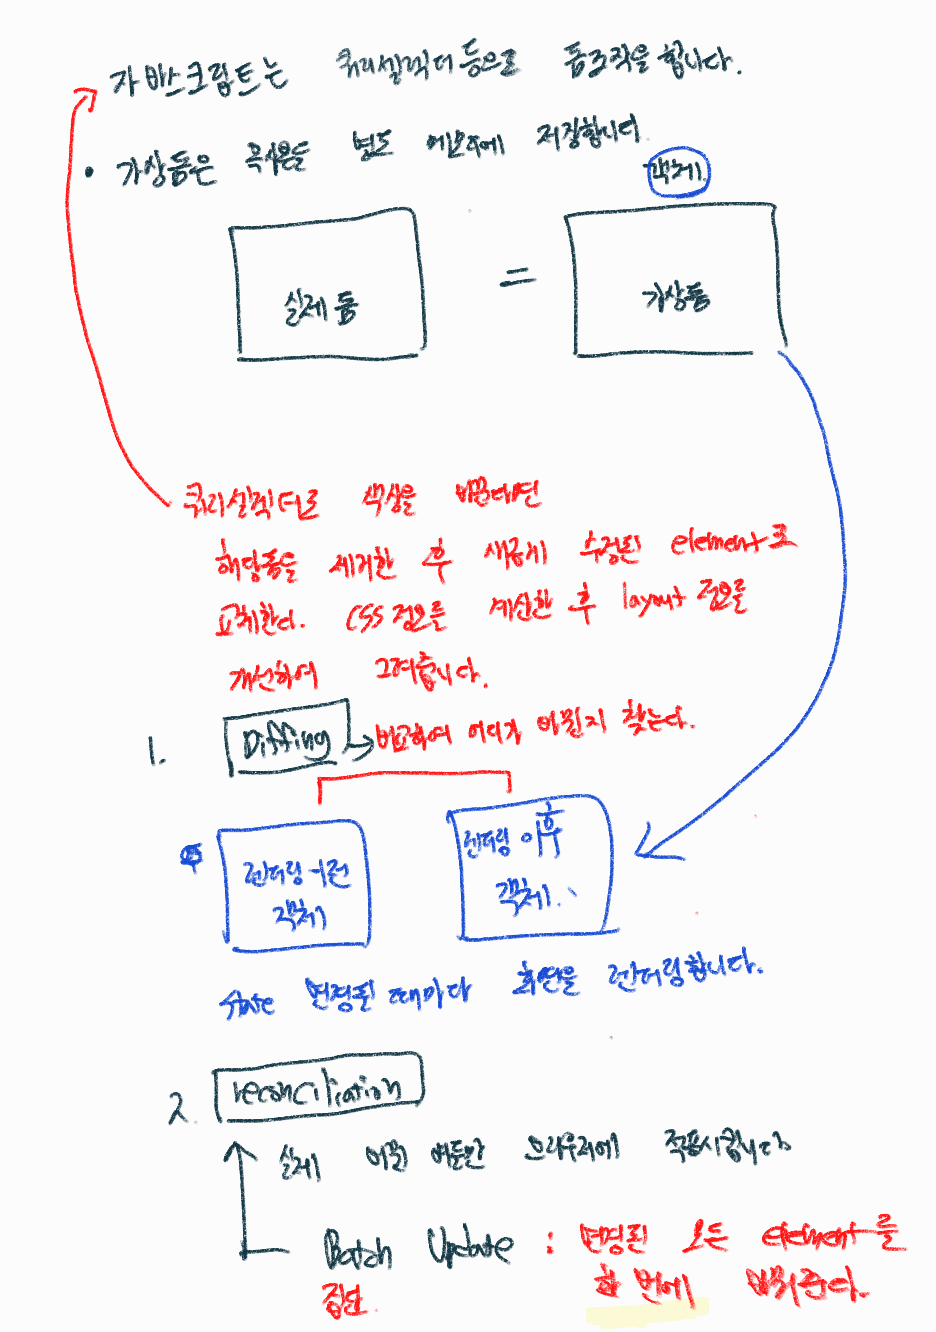 자바스크립트는 쿼리셀렉터 등으로 돔조작을 합니다.
• 가상돔은 복사본을 별도 메모리에 저장합니다.
객체.
실제 돔 = 가상돔
쿼리셀렉터로 색상을 바꾼다면
해당돔을 제거한 후 새롭게 수정된 element로
교체한다. CSS 정보를 계산한 후 layout 정보를
개선하여 그려줍니다.
1. Diffing → 비교하여 어디가 바뀐지 찾는다.
렌더링 이전 객체
렌더링 이후 객체.
state 변경될 때마다 화면을 렌더링합니다.
2. reconciliation
실제 바뀐 부분만 브라우저에 적용시킵니다
Batch Update : 변경된 모든 element를
집단 한 번에 바꿔준다.